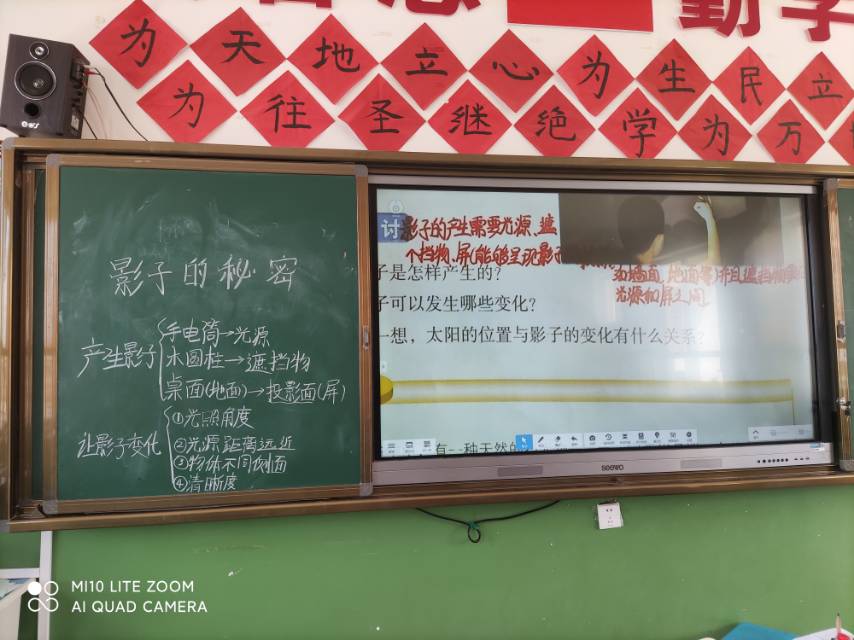 为天地立心为生民立
为往圣继绝学为万
勤学
影子的秘密
产生影子
手电筒→光源
木圆柱→遮挡物
桌面(地面)→投影面(屏)
让影子变化
①光照角度
②光源距离远近
③物体不同侧面
④清晰度
讨
影子的产生需要光源、遮
挡物、屏(能够呈现影子
子是怎样产生的?
光源和屏之间
子可以发生哪些变化?
一想，太阳的位置与影子的变化有什么关系?
有一种天然的
seewo
MI10 LITE ZOOM
AI QUAD CAMERA